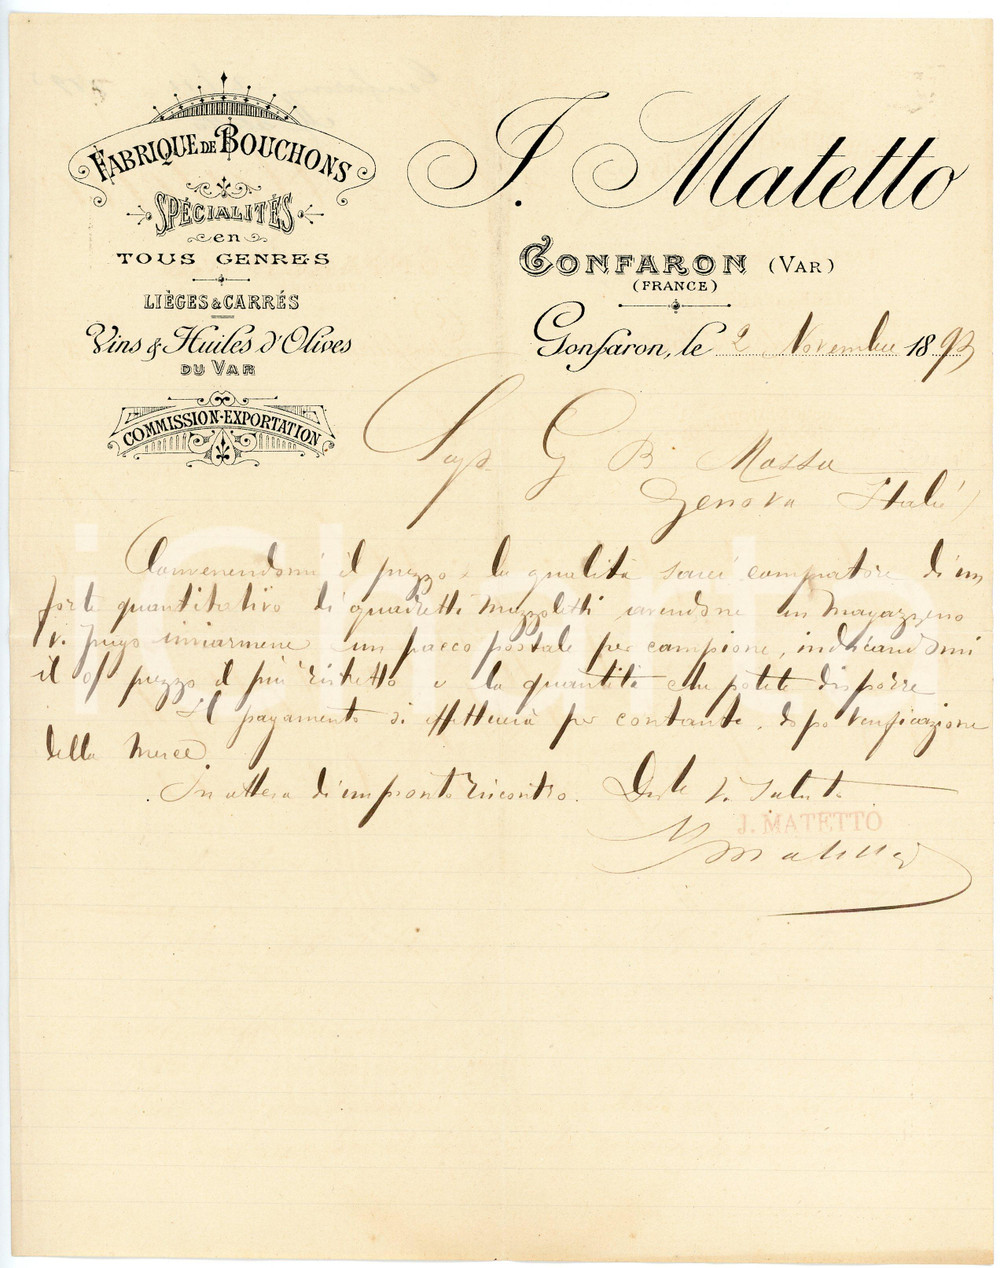 FABRIQUE DE BOUCHONS
SPÉCIALITÉS
en
TOUS GENRES
LIÈGES & CARRÉS
Vins & Huiles d'Olives
DU VAR
COMMISSION-EXPORTATION
J. Matetto
GONFARON (VAR)
(FRANCE)
Gonfaron, le 2 Novembre 1893
G B Massa
Genova Italie
Convenendomi il prezzo e la qualità sarei compratore di un
forte quantitativo di quadretti Mazzoletti avendone in Magazzeno
V. prego inviarmene un pacco postale per campione, indicandomi
il prezzo il più ristretto e la quantità che potete disporre
Il pagamento si effettuerà per contante, dopo verificazione
della Merce.
In attesa d'un pronto riscontro.
J. MATETTO